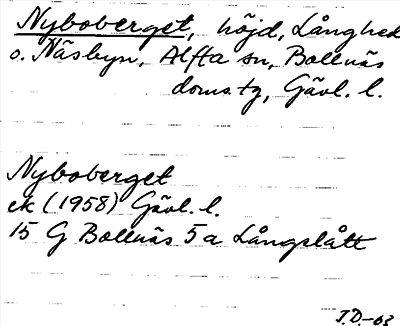 Nyboberget, höjd, Långhed
o. Näsbyn, Alfta sn, Bollnäs
doms.tg, Gävl. l.
Nyboberget
ek (1958) Gävl. l.
15 G Bollnäs 5a Långslått
T.D.-63